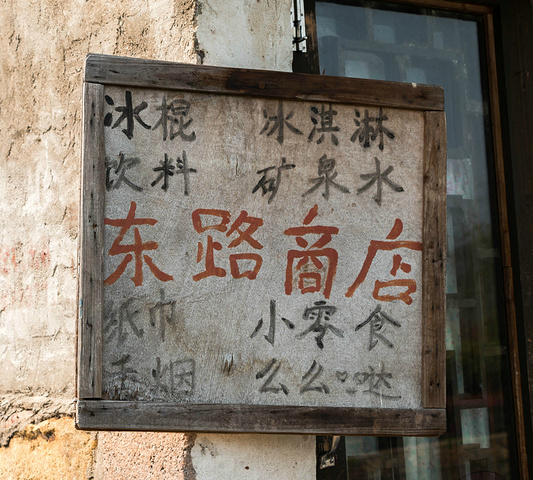 冰棍 冰淇淋
饮料 矿泉水
东路商店
纸巾 小零食
香烟 么么哒